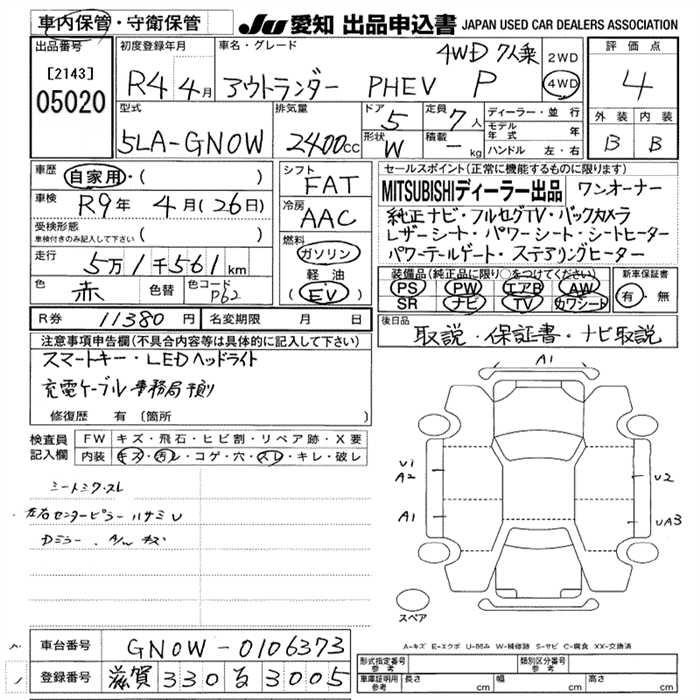 車内保管・守衛保管 JU 愛知 出品申込書 JAPAN USED CAR DEALERS ASSOCIATION
出品番号
[2143]
05020
初度登録年月
R4年4月
車名・グレード
4WD 7人乗
アウトランダー PHEV P
2WD
4WD
評価点
4
外装 内装
B B
型式
5LA-GN0W
排気量
2400cc
ドア
5
形状
W
定員
7人
積載
- kg
ディーラー・並行
モデル年式 年
ハンドル 左・右
車歴
自家用・( )
車検
R9年 4月(26日)
受検形態
車検付きのみ記入して下さい ( )
走行
5万1千561km
色
赤
色替
色コード
P62
シフト
FAT
冷房
AAC
燃料
ガソリン
軽油
(EV)
セールスポイント(正常に機能するものに限ります)
MITSUBISHIディーラー出品 ワンオーナー
純正ナビ・フルセグTV・バックカメラ
レザーシート・パワーシート・シートヒーター
パワーテールゲート・ステアリングヒーター
装備品(純正品に限り○をつけてください)
PS PW エアB AW
SR ナビ TV カワシート
新車保証書
有・無
R券 11380円 名変期限 月 日
後日品
取説・保証書・ナビ取説
注意事項申告欄(不具合内容等は具体的に記入して下さい)
スマートキー・LEDヘッドライト
充電ケーブル事務局預り
修復歴 有 (箇所 )
検査員記入欄
FW キズ・飛石・ヒビ割・リペア跡・X要
内装 キズ・汚レ・コゲ・穴・スレ・キレ・破レ
シートシワ・スレ
左右センターピラーハサミU
Dミラー、A/W キズ
A1
U1
A2
A1
U2
UA3
スペア
A-キズ E-エクボ U-凹み W-補修跡 S-サビ C-腐食 XX-交換済
車台番号 GN0W-0106373
登録番号 滋賀 330 る 3005
形式指定番号
参考
類別区分番号
参考
車庫証明用
参考
長さ cm 幅 cm 高さ cm